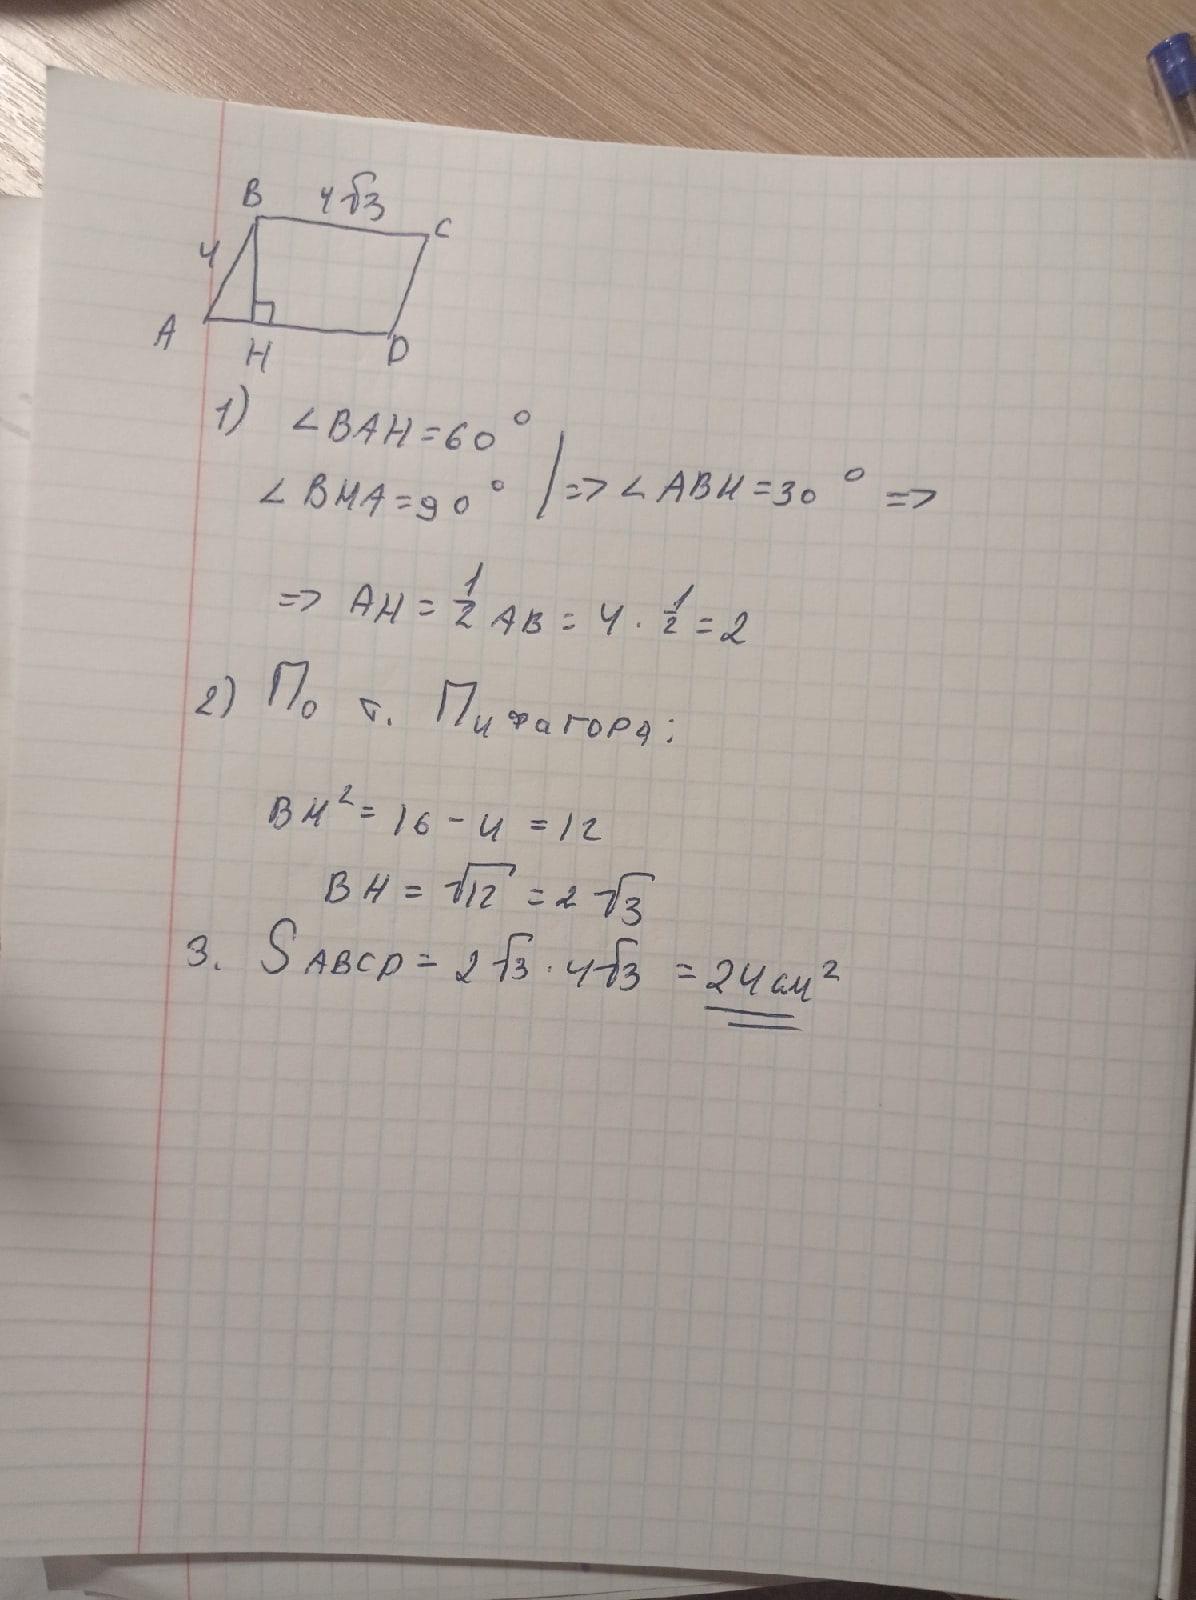 B 4√3 C
4
A H D
1) ∠BAH=60°
∠BHA=90° | => ∠ABH=30° =>
=> AH = 1/2 AB = 4 · 1/2 = 2
2) По т. Пифагора:
BH² = 16 - 4 = 12
BH = √12 = 2√3
3. SABCD = 2√3 · 4√3 = 24 см²